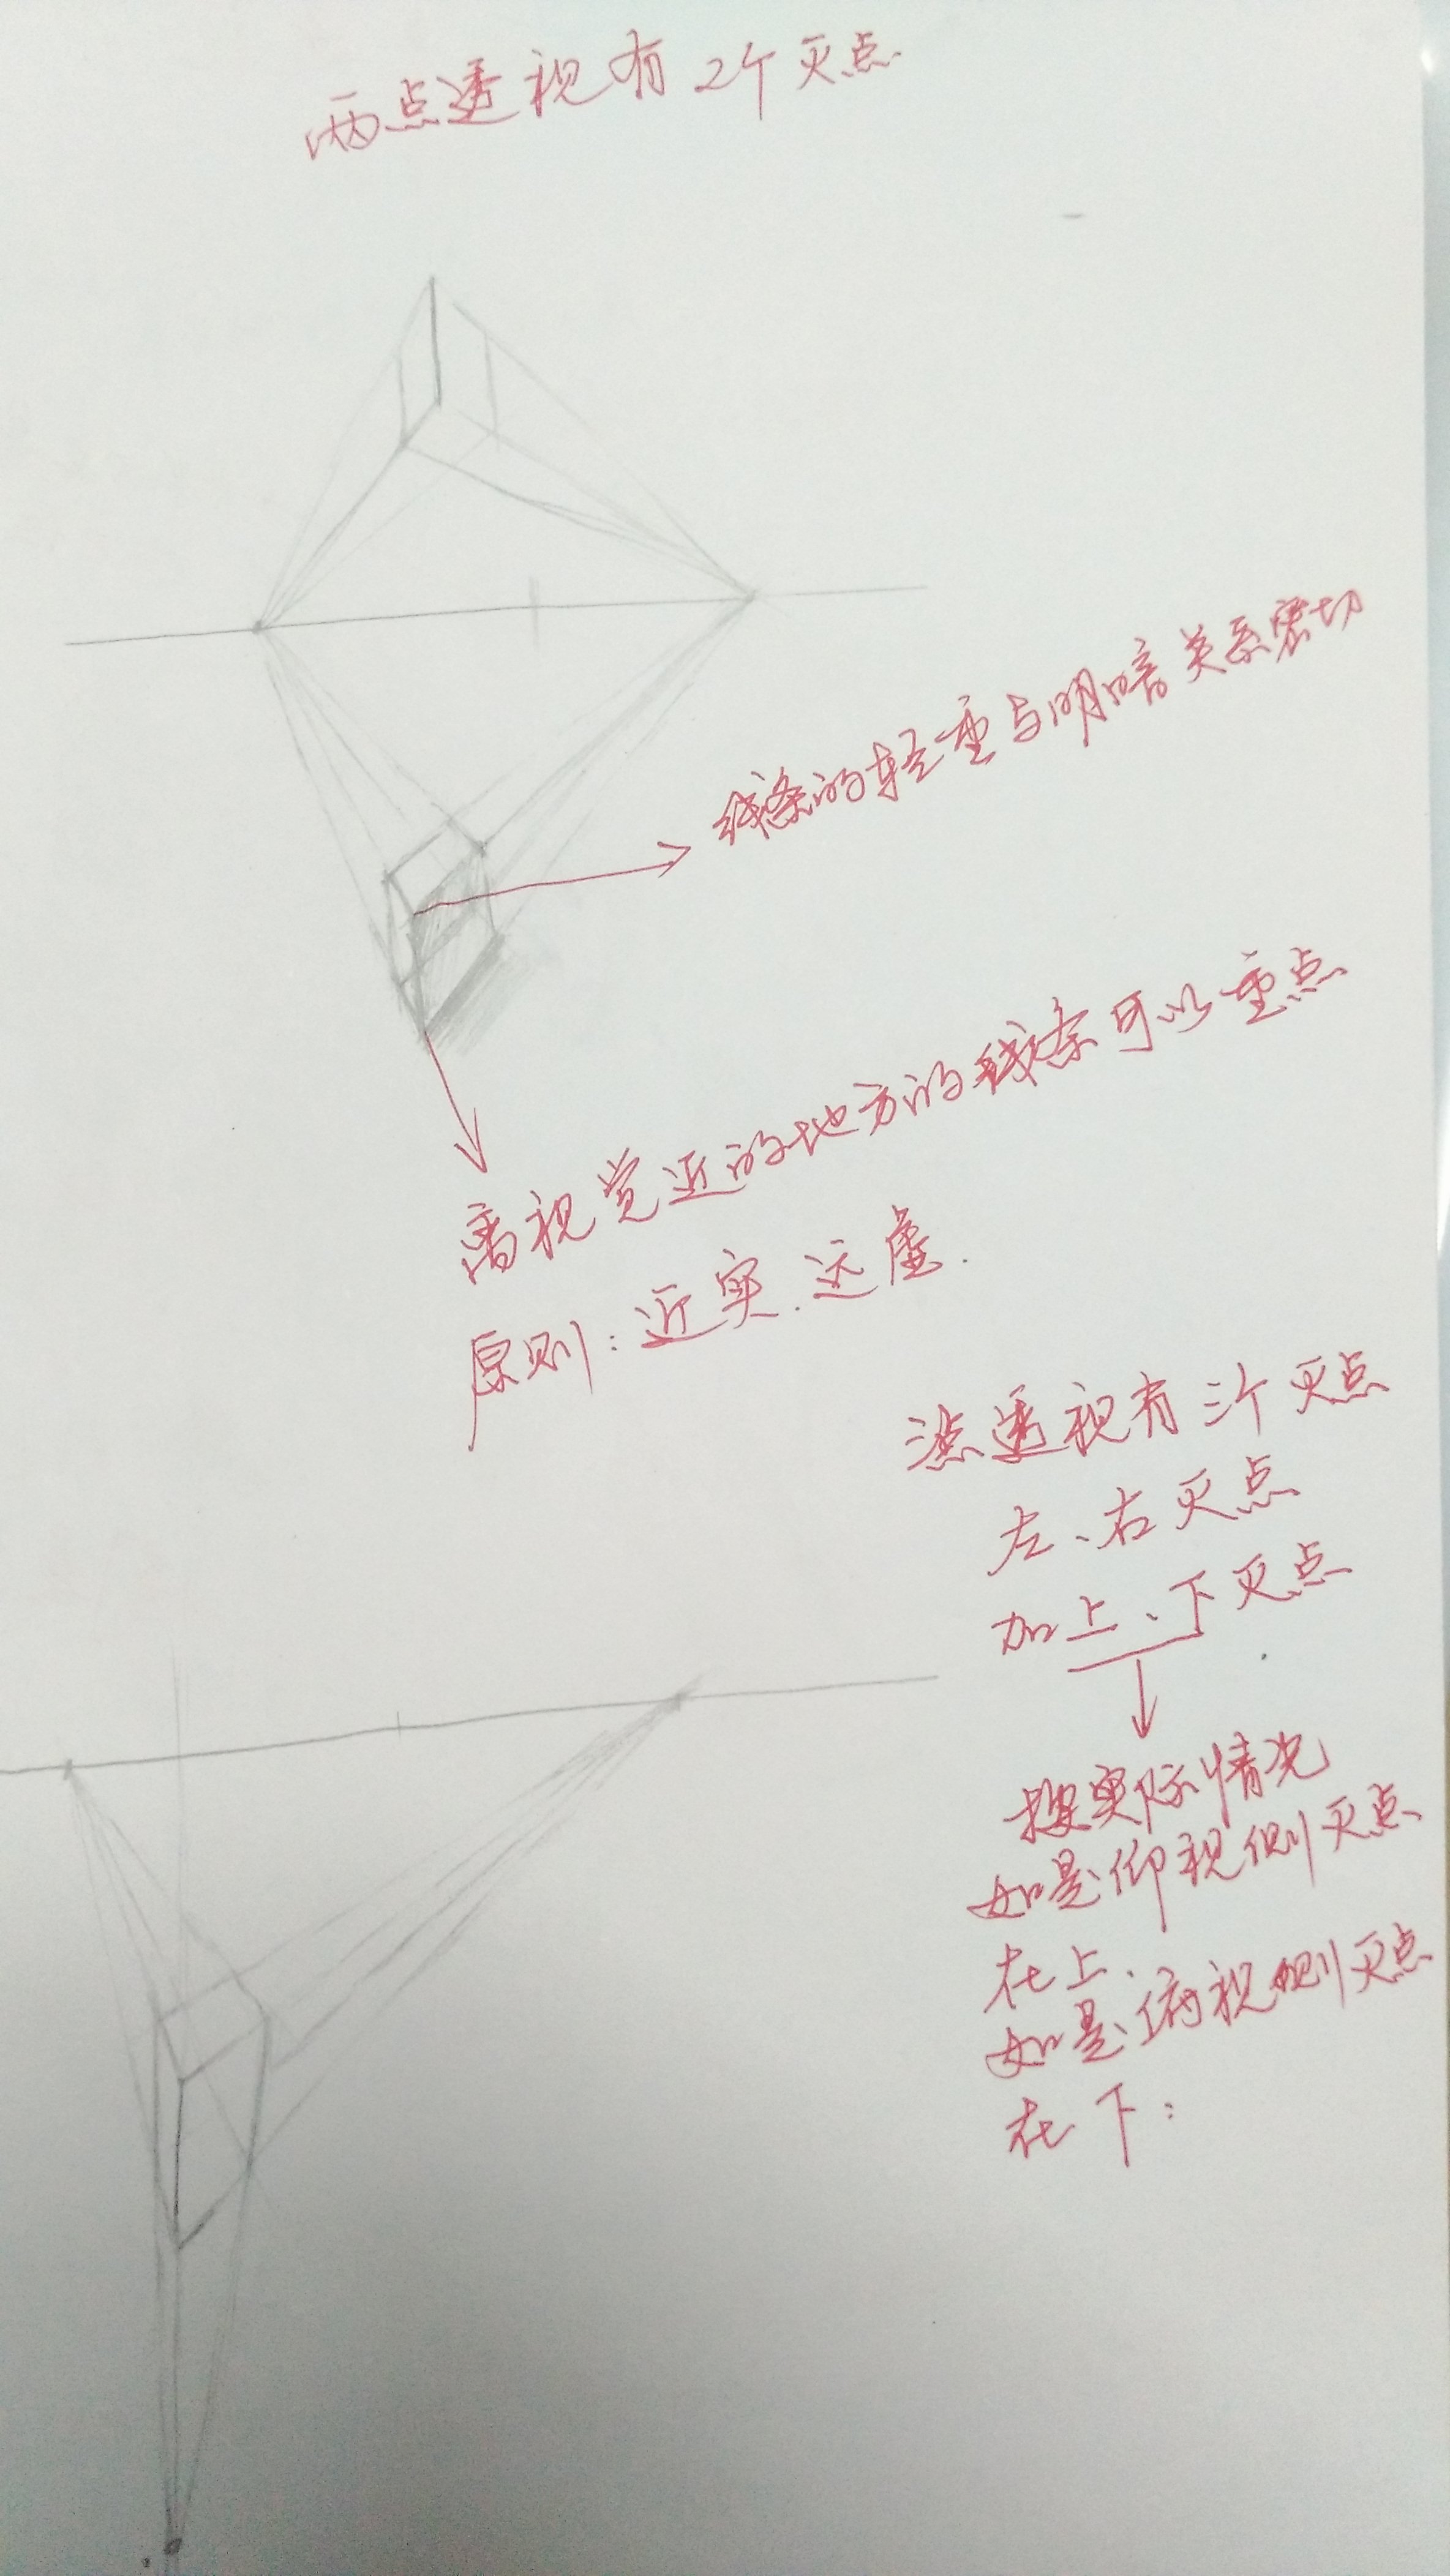 两点透视有2个灭点.
线条的轻重与明暗关系密切
离视觉近的地方的线条可以重点
原则:近实.远虚.
三点透视有三个灭点
左、右灭点
加上、下灭点
按实际情况
如是仰视侧灭点
在上.
如是俯视侧灭点
在下: